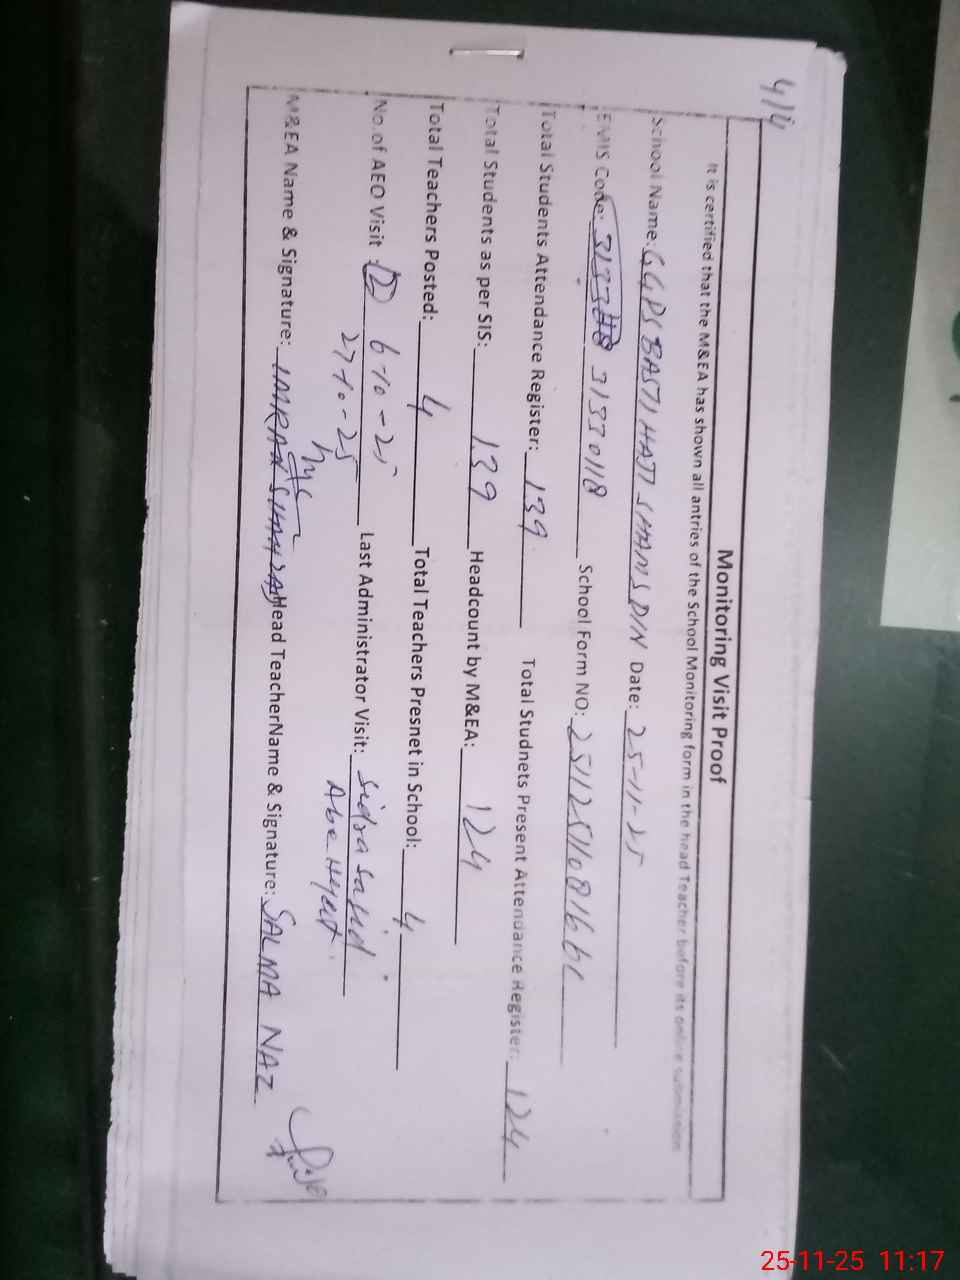 4/4
Monitoring Visit Proof
It is certified that the M&EA has shown all antries of the School Monitoring form in the head Teacher before its online submission
School Name: GGPS BASTI HAJI SHAMS DIN Date: 25-11-25
EMIS Code: 31330118 School Form NO: 25112511081661
Total Students Attendance Register: 139 Total Studnets Present Attendance Register: 124
Total Students as per SIS: 139 Headcount by M&EA: 124
Total Teachers Posted: 4 Total Teachers Presnet in School: 4
No.of AEO Visit : 2 6-10-25 Last Administrator Visit: Sidra Sajid
27-10-25
M&EA Name & Signature: IMRAN Head TeacherName & Signature: SALMA NAZ
25-11-25 11:17